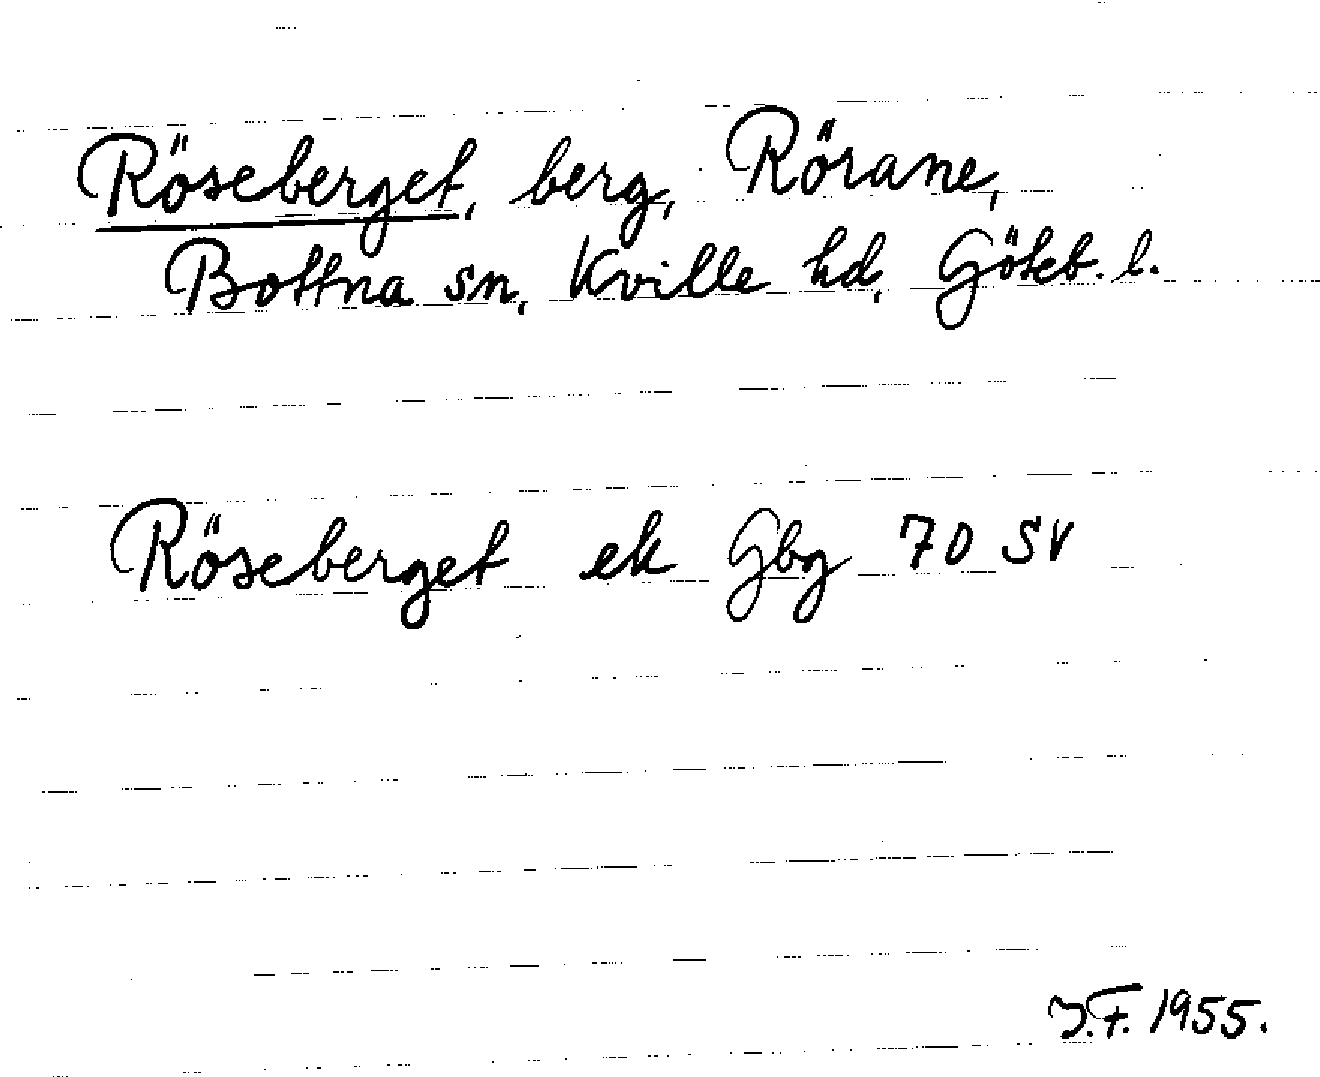 Röseberget, berg, Rörane,
Bottna sn, Kville hd, Göteb. l.
Röseberget ek Gbg 70 SV
J.F. 1955.